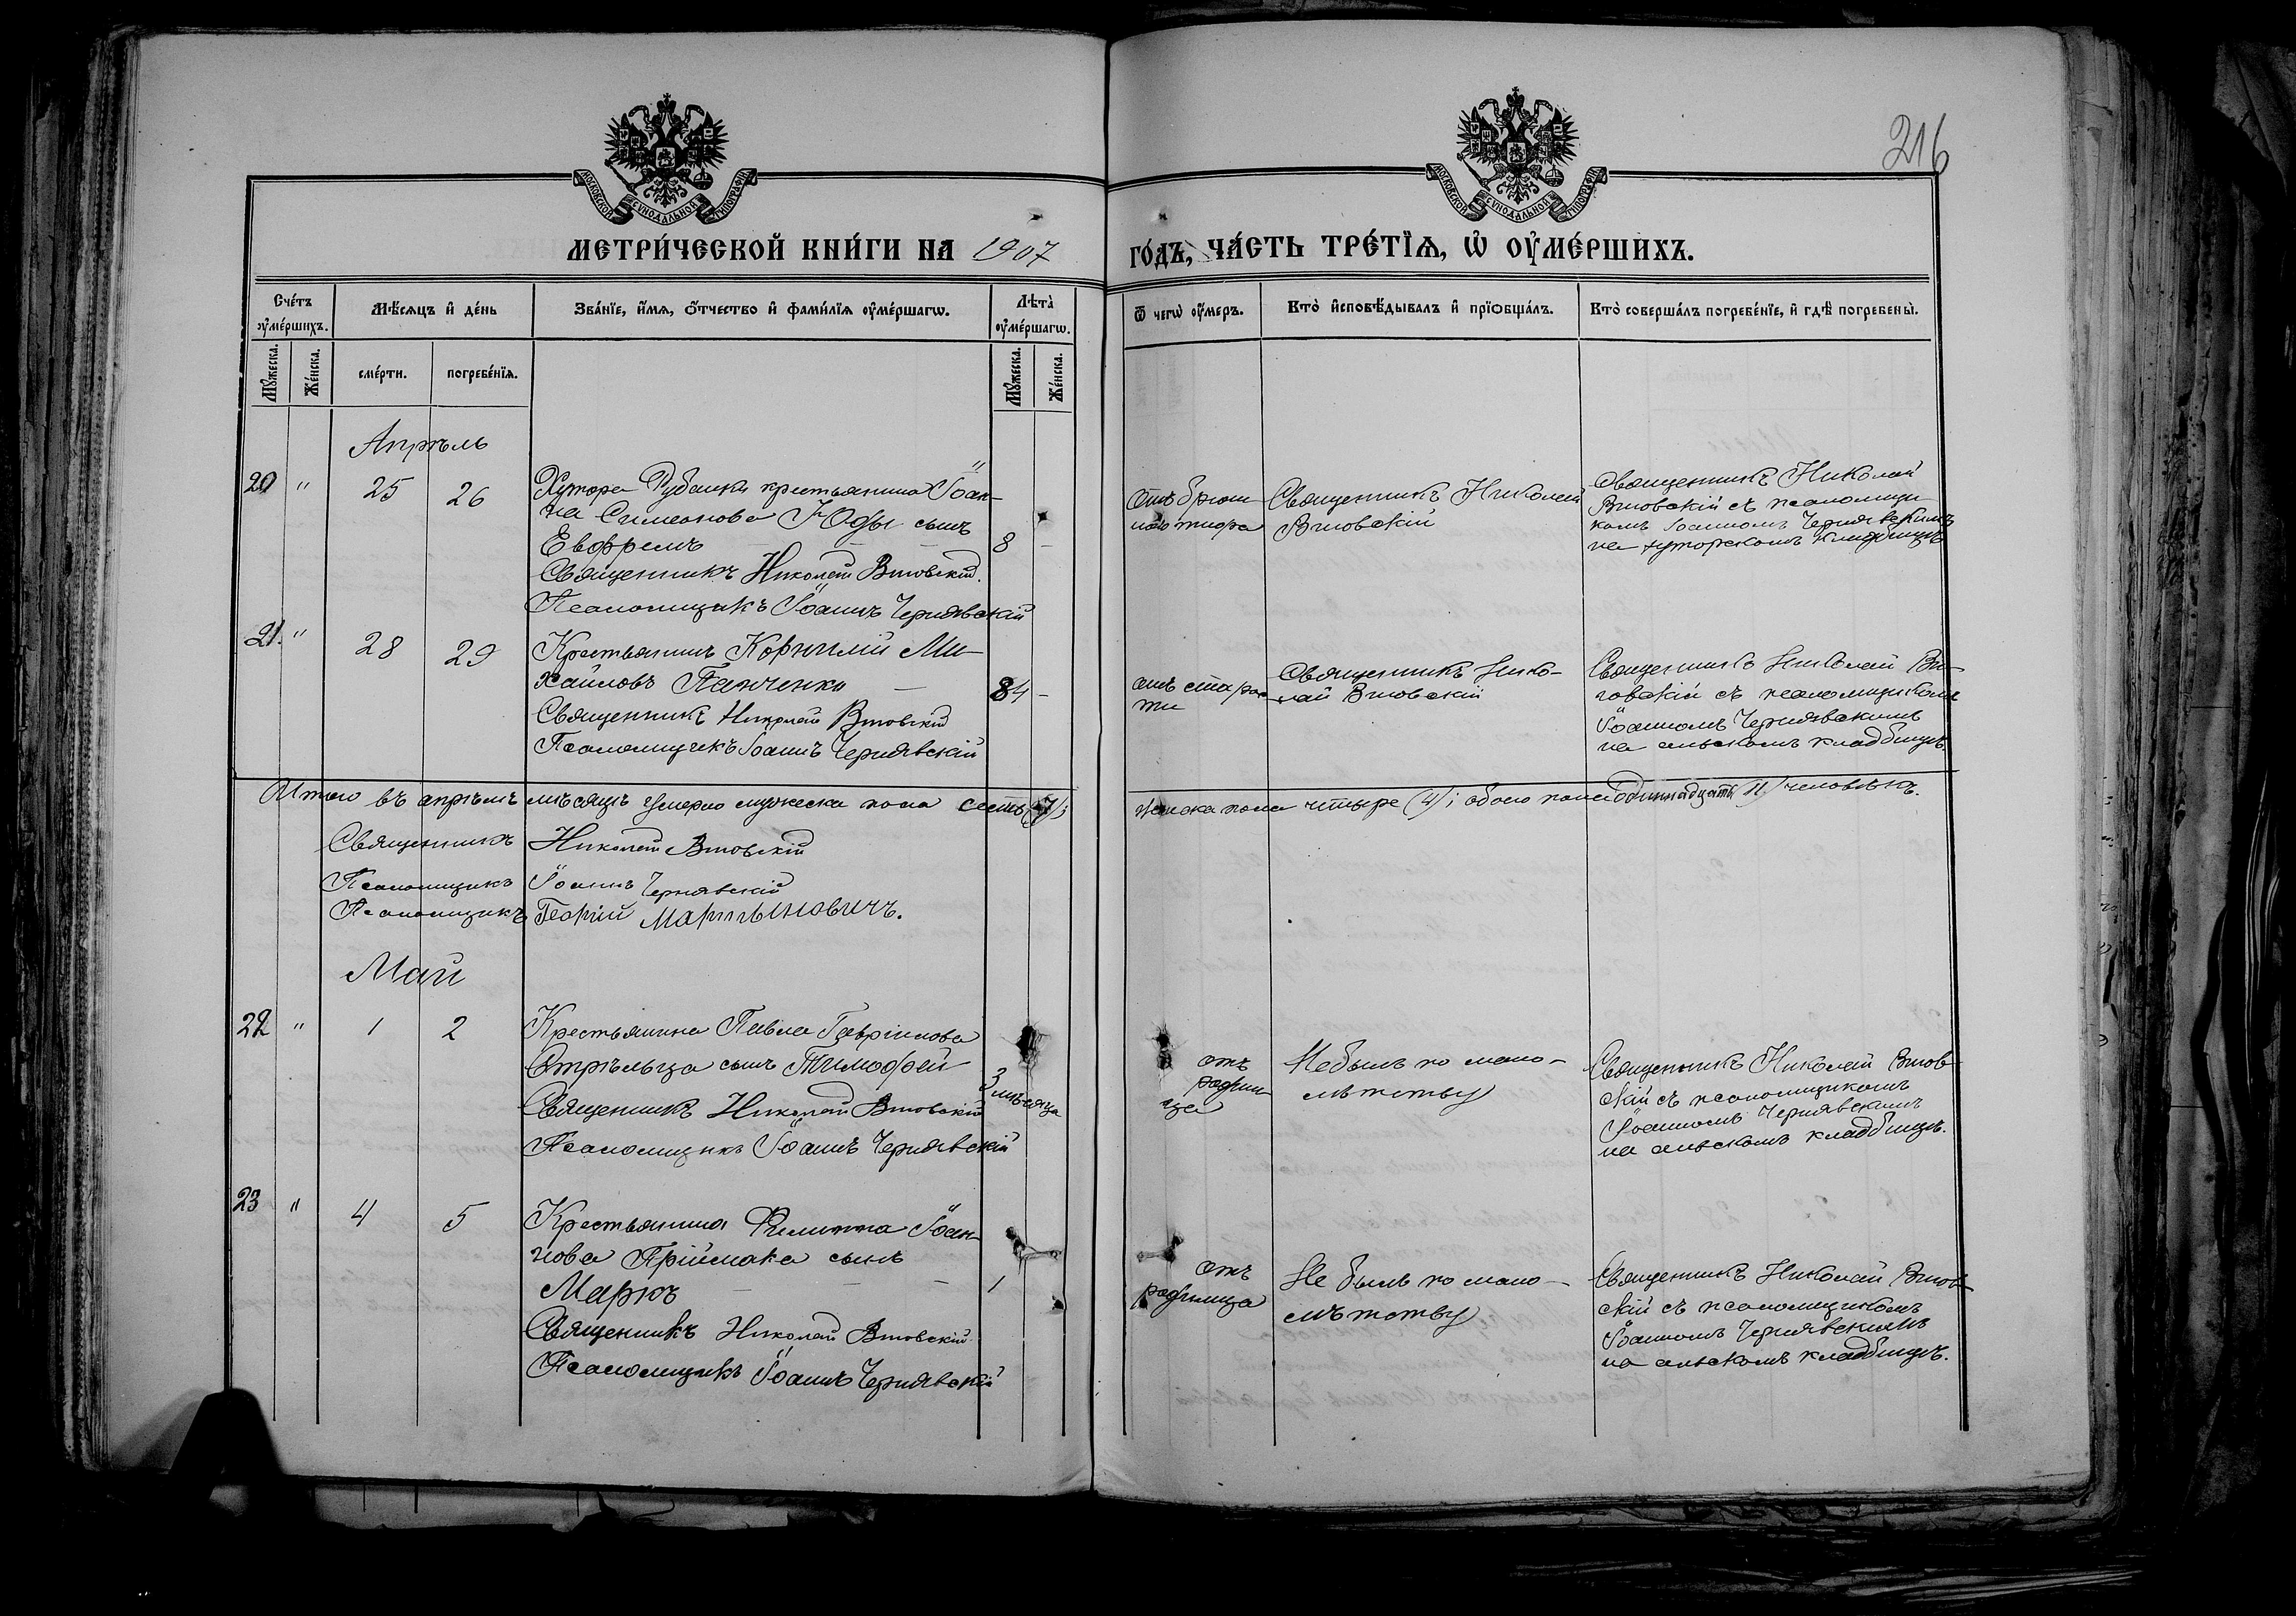 216
МОСКОВСКОЙ СѴНОДАЛЬНОЙ ТИПОГРАФІИ
МОСКОВСКОЙ СѴНОДАЛЬНОЙ ТИПОГРАФІИ
МЕТРИ́ЧЕСКОЙ КНИ́ГИ НА 1907 ГО́ДЪ, ЧА́СТЬ ТРЕ́ТЇѦ, Ѡ҆ ОУ҆МЕ́РШИХЪ.
Сче́тъ оу҆ме́ршихъ.
Мѣ́сяцъ и҆ де́нь
Зва́нїе, и҆́мѧ, о҆́тчество и҆ фами́лїѧ оу҆ме́ршагѡ.
Лѣта̀ оу҆ме́ршагѡ.
Ѿ чегѡ̀ оу҆́меръ.
Кто̀ и҆сповѣ́дывалъ и҆ прїѡбща́лъ.
Кто̀ соверша́лъ погребе́нїе, и҆ гдѣ̀ погребены̀.
Мꙋ́жеска.
Же́нска.
сме́рти.
погребе́нїѧ.
Мꙋ́жеска.
Же́нска.
Апрѣль
20 " 25 26
Хутора Рубанки крестьянина Іоан-
на Симеонова Юды сынъ
Евфремъ — — 8 —
Священникъ Николай Витовскій.
Псаломщикъ Іоаннъ Чернявскій
Отъ брюш-
ного тифа
Священникъ Николай
Витовскій
Священникъ Николай
Витовскій съ псаломщи-
комъ Іоанномъ Чернявскимъ
на хуторскомъ кладбищѣ
21. " 28 29
Крестьянинъ Корнилій Ми-
хайловъ Панченко — 84 —
Священникъ Николай Витовскій
Псаломщикъ Іоаннъ Чернявскій
отъ старос-
ти
Священникъ Нико-
лай Витовскій
Священникъ Николай Ви-
товскій съ псаломщикомъ
Іоанномъ Чернявскимъ
на сельскомъ кладбищѣ.
Итого въ апрѣлѣ мѣсяцѣ умерло мужеска пола семь (7);
женска пола четыре (4); обоего пола одиннадцать 11) человѣкъ.
Священникъ Николай Витовскій
Псаломщикъ Іоаннъ Чернявскій
Псаломщикъ Георгій Мартыновичъ.
Май
22 " 1 2
Крестьянина Павла Гавріилова
Стрѣльца сынъ Тимофей
3 мѣсяца
Священникъ Николай Витовскій
Псаломщикъ Іоаннъ Чернявскій
отъ
родим-
ца
Не былъ по мало-
лѣтству
Священникъ Николай Витов-
скій съ псаломщикомъ
Іоанномъ Чернявскимъ
на сельскомъ кладбищѣ.
23 " 4 5
Крестьянина Филиппа Іоан-
нова Пріймака сынъ
Маркъ — — 1
Священникъ Николай Витовскій
Псаломщикъ Іоаннъ Чернявскій
отъ
родимца
Не былъ по мало-
лѣтству
Священникъ Николай Витов-
скій съ псаломщикомъ
Іоанномъ Чернявскимъ
на сельскомъ кладбищѣ.